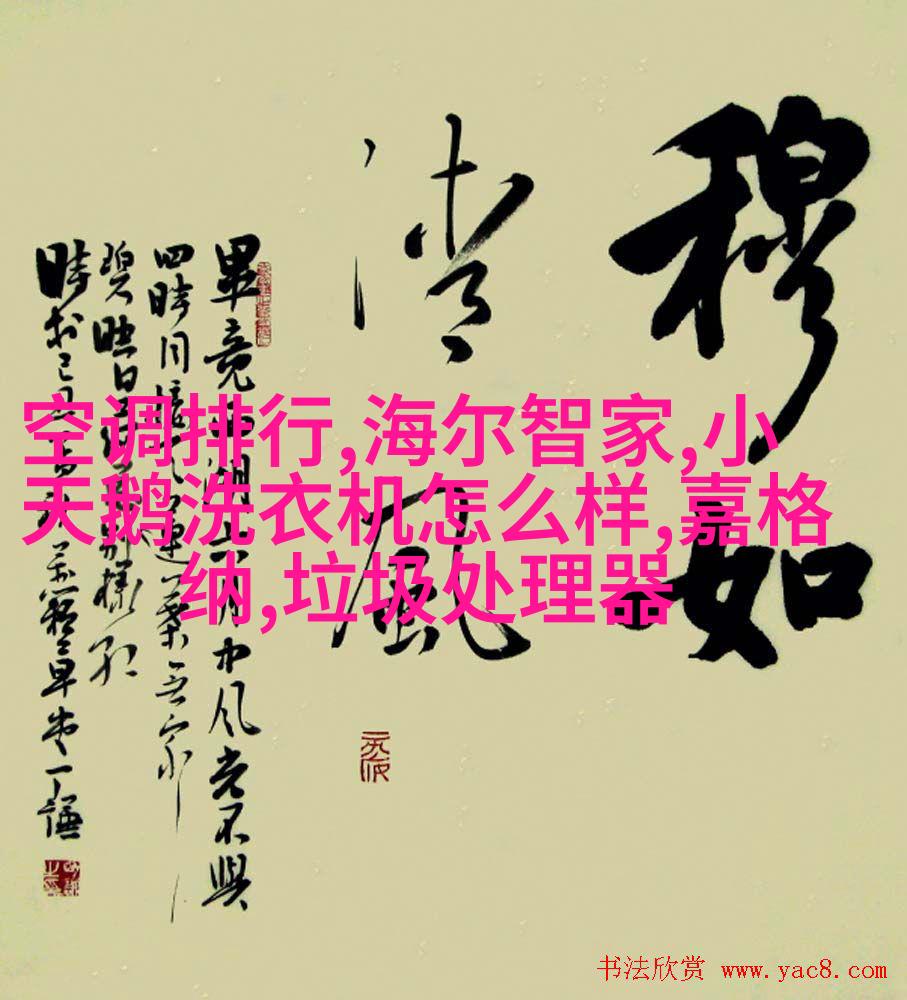 穆如
清风
畢竟西湖六月中风光不與
四時同接天莲葉无穷
碧映日荷花别樣红
空调排行,海尔智家,小
天鹅洗衣机怎么样,嘉格
纳,垃圾处理器
书法欣赏 www.yac8.com